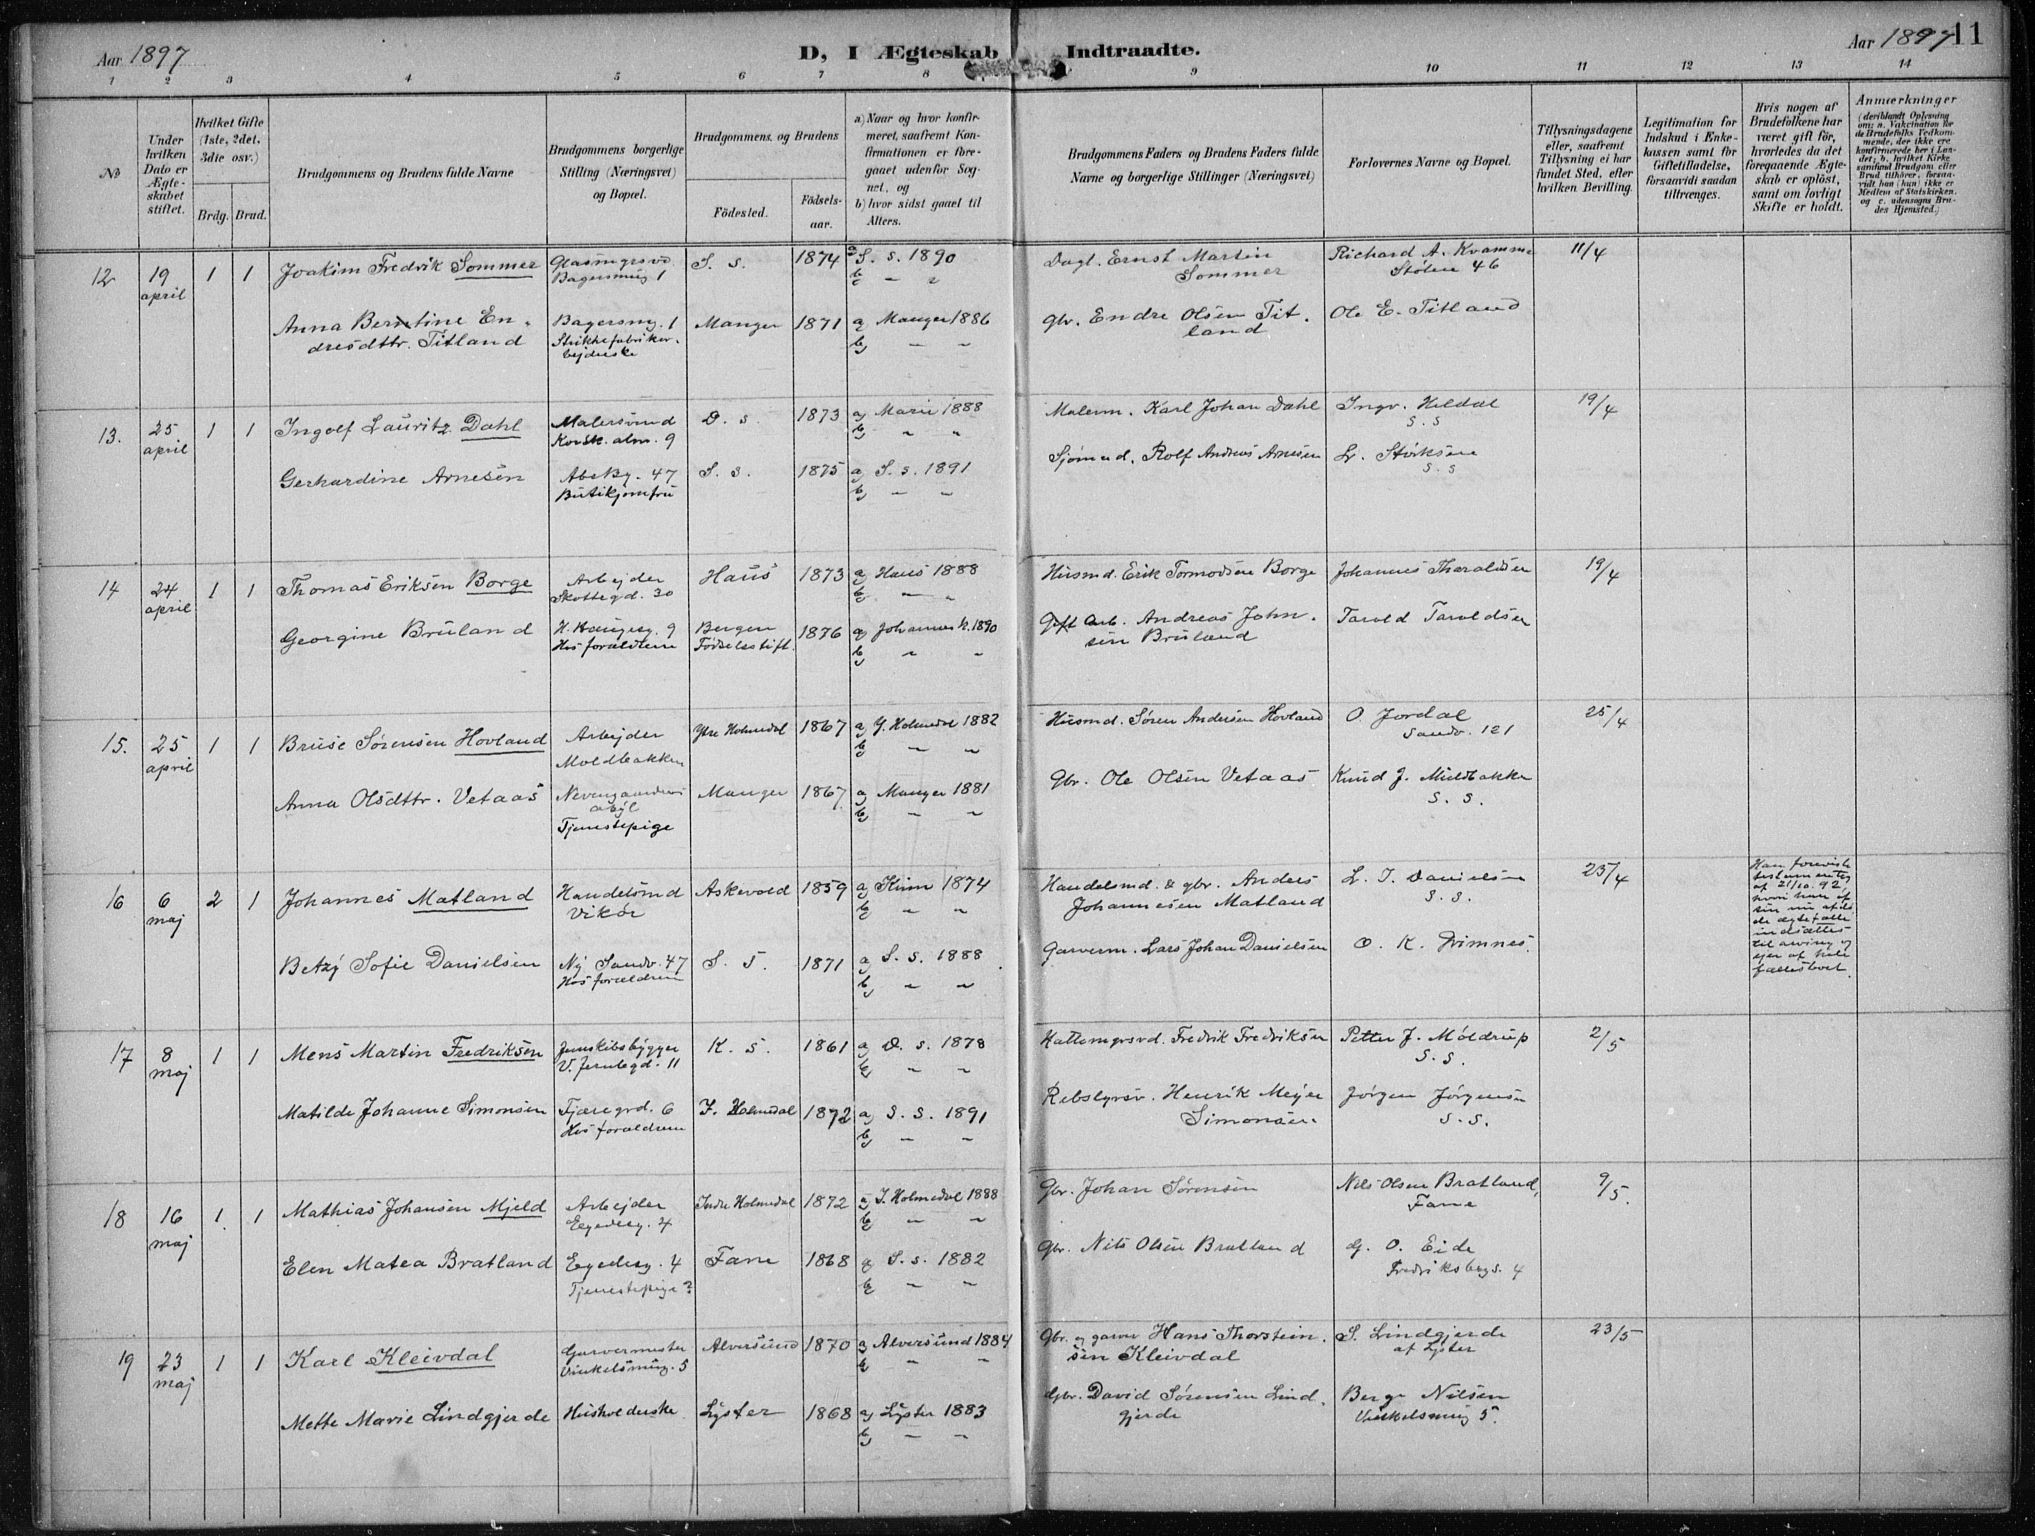 Aar 1897
D, I Ægteskab Indtraadte.
Aar 1897
11
1 2 3 4 5 6 7 8 9 10 11 12 13 14
No
Under hvilken Dato er Ægteskabet stiftet.
Hvilket Gifte (1ste, 2det, 3die osv.)
Brdg. Brud.
Brudgommens og Brudens fulde Navne
Brudgommens borgerlige Stilling (Næringsvei) og Bopæl.
Brudgommens og Brudens
Födested.
Födselsaar.
a) Naar og hvor konfirmeret, saafremt Konfirmationen er foregaaet udenfor Sognet, og
b) hvor sidst gaaet til Alters.
Brudgommens Faders og Brudens Faders fulde Navne og borgerlige Stillinger (Næringsvei)
Forlovernes Navne og Bopæl.
Tillysningsdagene eller, saafremt Tillysning ei har fundet Sted, efter hvilken Bevilling.
Legitimation for Indskud i Enkekassen samt for Giftetilladelse, forsaavidt saadan tiltrænges.
Hvis nogen af Brudefolkene har været gift för, hvorledes da det foregaaende Ægteskab er oplöst, samt om lovligt Skifte er holdt.
Anmærkninger
(deriblandt Oplysning om: a. Vakcination for de Brudefolks Vedkommende, der ikke ere konfirmerede her i Landet; b. hvilket Kirkesamfund Brudgom eller Brud tilhører, forsaavidt han (hun) ikke er Medlem af Statskirken, og c. udensogns Brudes Hjemsted.)
12 19 april 1 1 Joakim Fredrik Sommer S. s. 1874 a S. s. 1890 Dagl. Ernst Martin Sommer Richard A. Kvamme Stølen 46 11/4
Bagersmug 1 b " "
Anna Berntine Endresdttr. Titland Bagersmg. 1 Manger 1871 a Manger 1886 Gbr. Endre Olsen Titland Ole E. Titland
b " "
13. 25 april 1 1 Ingolf Lauritz Dahl Malersvend Korsk. alm. 9 D. s. 1873 a Marie 1888 Malerm. Karl Johan Dahl Ingv. Heldal s. s 19/4
b " "
Gerhardine Arnesen 47 Butikjomfru S. s. 1875 a S. s. 1891 Sjømd. Rolf Andreas Arnesen L. Størksen s. s
b " "
14 24 april 1 1 Thomas Eriksen Borge Arbejder Skottegd. 30 Haus 1873 a Haus 1888 Husmd. Erik Tormodsen Borge Johannes Tharaldsen 19/4
b " "
Georgine Brüland H. Haugesg. 9 Hos forældrene Bergens Fødselsstift. 1876 a Johannes k. 1890 arb. Andreas Johnsen Brüland Tarold Taroldsen
b " "
15. 25 april 1 1 Bruse Sørensen Hovland Arbejder Moldbakken Ytre Holmedal 1867 a Y. Holmedal 1882 Husmd. Søren Andersen Hovland O. Jordal Sandv. 121 25/4
b " "
Anna Olsdttr. Vetaas Tjenestepige Manger 1867 a Manger 1881 Gbr. Ole Olsen Vetaas Knud J. Muldbakke s. s.
b " "
16 6 maj 2 1 Johannes Matland Handelsmd Vikør Askevold 1859 a Kinn 1874 Handelsmd. & gbr. Anders Johannesen Matland L. J. Danielsen s. s. 25/4
b " "
af 21/10. 92,
Betzy Sofie Danielsen Ny Sandv. 47 Hos forældrene S. S. 1871 a S. s. 1888 Garverm. Lars Johan Danielsen O. K. Grimnes.
b " "
17 8 maj 1 1 Mens Martin Fredriksen Jernskibsbygger 11 K. S. 1861 a D. s. 1878 Fredrik Fredriksen Petter J. Møldrup s. s. 2/5
b " "
Matilde Johanne Simonsen Tjæregrd. 6 Hos forældrene Holmedal 1872 a S. s. 1891 Rebslgrsv. Henrik Meyer Simonsen Jørgen Jørgensen s. s.
b " "
18 16 maj 1 1 Mathias Johansen Mjeld Arbejder Egedesg. 4 Indre Holmedal 1872 a I. Holmedal 1888 Gbr. Johan Sørensen Nils Olsen Bratland, Fane 9/5.
b " "
Elen Matea Bratland Egedesg. 4 Tjenestepige? Fane 1868 a S. s. 1882 Gbr. Nils Olsen Bratland O. Eide Fredriksbergs. 4
b " "
19 23 maj 1 1 Karl Kleivdal Garvermester Vinkelsmug. 5 Alversund 1870 a Alversund 1884 Gbr. og garver Hans Thorsteinsen Kleivdal S. Lindgjerde af Lyster 23/5
b " "
Mette Marie Lindgjerde Husholderske Lyster 1868 a Lyster 1883 Gbr. David Sørensen Lindgjerde Berge Nilsen Vinkelsmug 5.
b " "